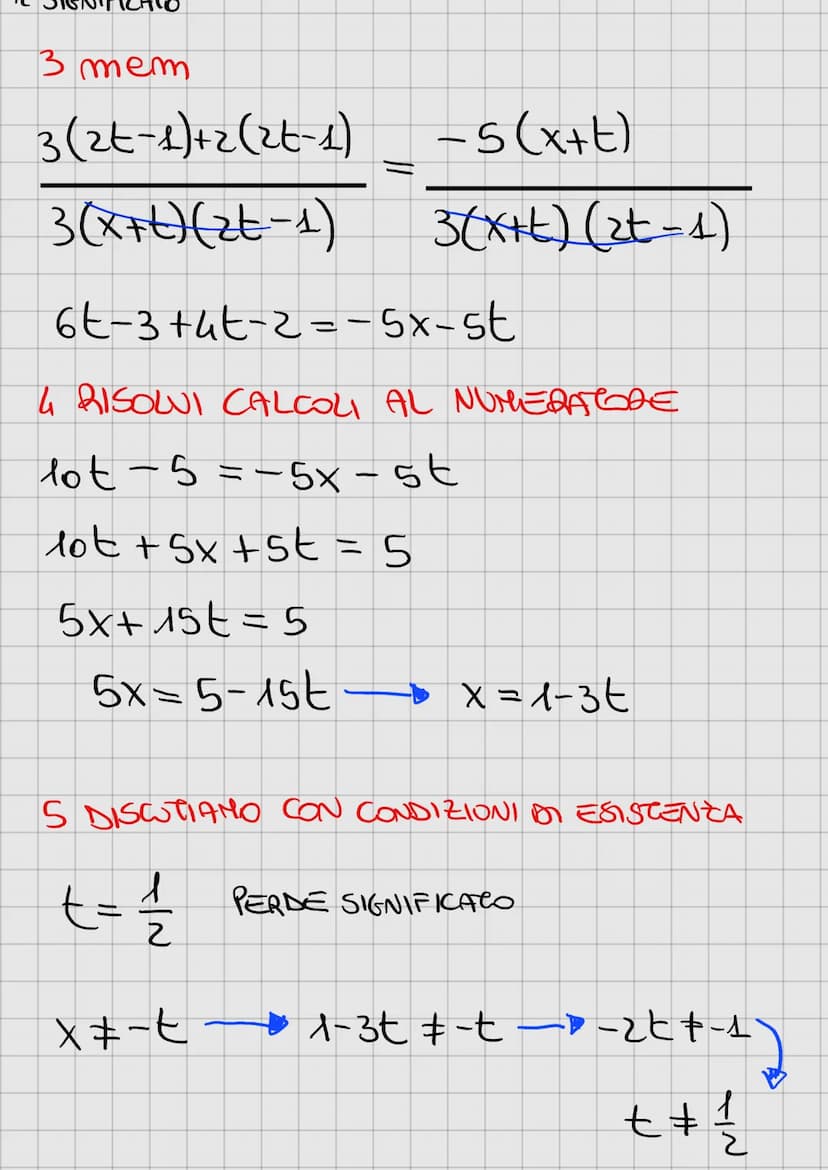 IL SIGNIFICATO
3 mcm
3(2t-1)+2(2t-1) / 3(x+t)(2t-1) = -5(x+t) / 3(x+t)(2t-1)
6t-3+4t-2=-5x-5t
4 RISOLVI CALCOLI AL NUMERATORE
10t-5=-5x-5t
10t+5x+5t=5
5x+15t=5
5x=5-15t → x=1-3t
5 DISCUTIAMO CON CONDIZIONI DI ESISTENZA
t=1/2 PERDE SIGNIFICATO
x≠-t → 1-3t≠-t → -2t≠-1
t≠1/2